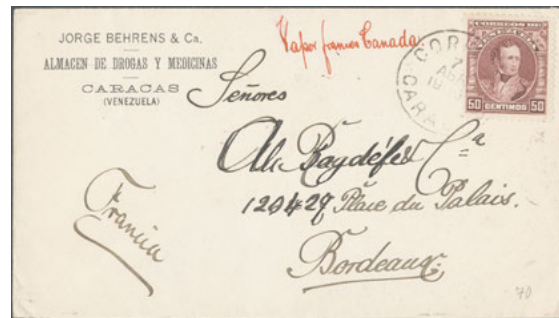 JORGE BEHRENS & Ca.
ALMACEN DE DROGAS Y MEDICINAS
CARACAS
(VENEZUELA)
Vapor frances Canada.
CORREOS DE
VENEZUELA
50 CENTIMOS 50
COR
7
CARA
Señores
Al. Baydéfer Cª
12 & 27 Place du Palais.
Bordeaux.
Francia
70